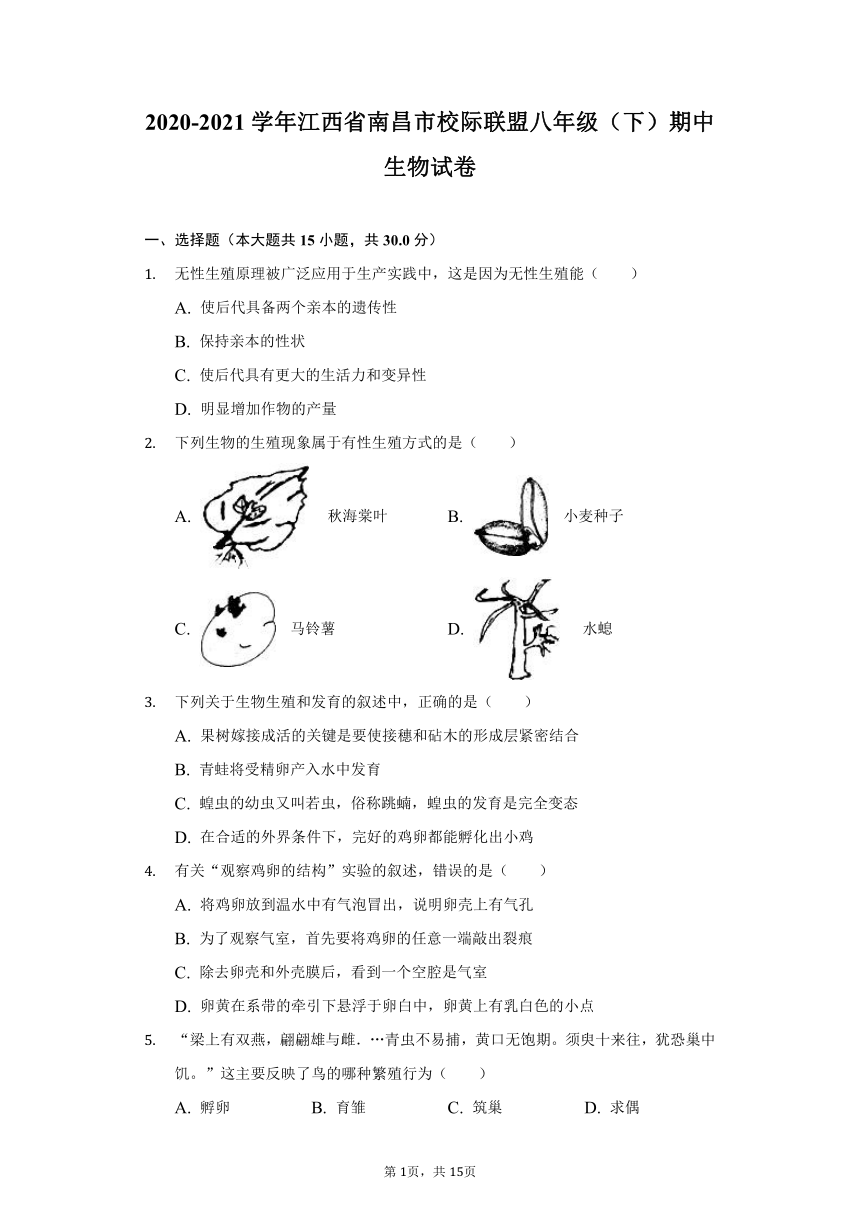 2020-2021 学年江西省南昌市校际联盟八年级（下）期中
生物试卷
一、选择题（本大题共 15 小题，共 30.0 分）
1. 无性生殖原理被广泛应用于生产实践中，这是因为无性生殖能（  ）
A. 使后代具备两个亲本的遗传性
B. 保持亲本的性状
C. 使后代具有更大的生活力和变异性
D. 明显增加作物的产量
2. 下列生物的生殖现象属于有性生殖方式的是（  ）
A. 秋海棠叶 B. 小麦种子
C. 马铃薯 D. 水螅
3. 下列关于生物生殖和发育的叙述中，正确的是（  ）
A. 果树嫁接成活的关键是要使接穗和砧木的形成层紧密结合
B. 青蛙将受精卵产入水中发育
C. 蝗虫的幼虫又叫若虫，俗称跳蝻，蝗虫的发育是完全变态
D. 在合适的外界条件下，完好的鸡卵都能孵化出小鸡
4. 有关“观察鸡卵的结构”实验的叙述，错误的是（  ）
A. 将鸡卵放到温水中有气泡冒出，说明卵壳上有气孔
B. 为了观察气室，首先要将鸡卵的任意一端敲出裂痕
C. 除去卵壳和外壳膜后，看到一个空腔是气室
D. 卵黄在系带的牵引下悬浮于卵白中，卵黄上有乳白色的小点
5. “梁上有双燕，翩翩雄与雌．…青虫不易捕，黄口无饱期。须臾十来往，犹恐巢中
饥。”这主要反映了鸟的哪种繁殖行为（  ）
A. 孵卵 B. 育雏 C. 筑巢 D. 求偶
第 1页，共 15页